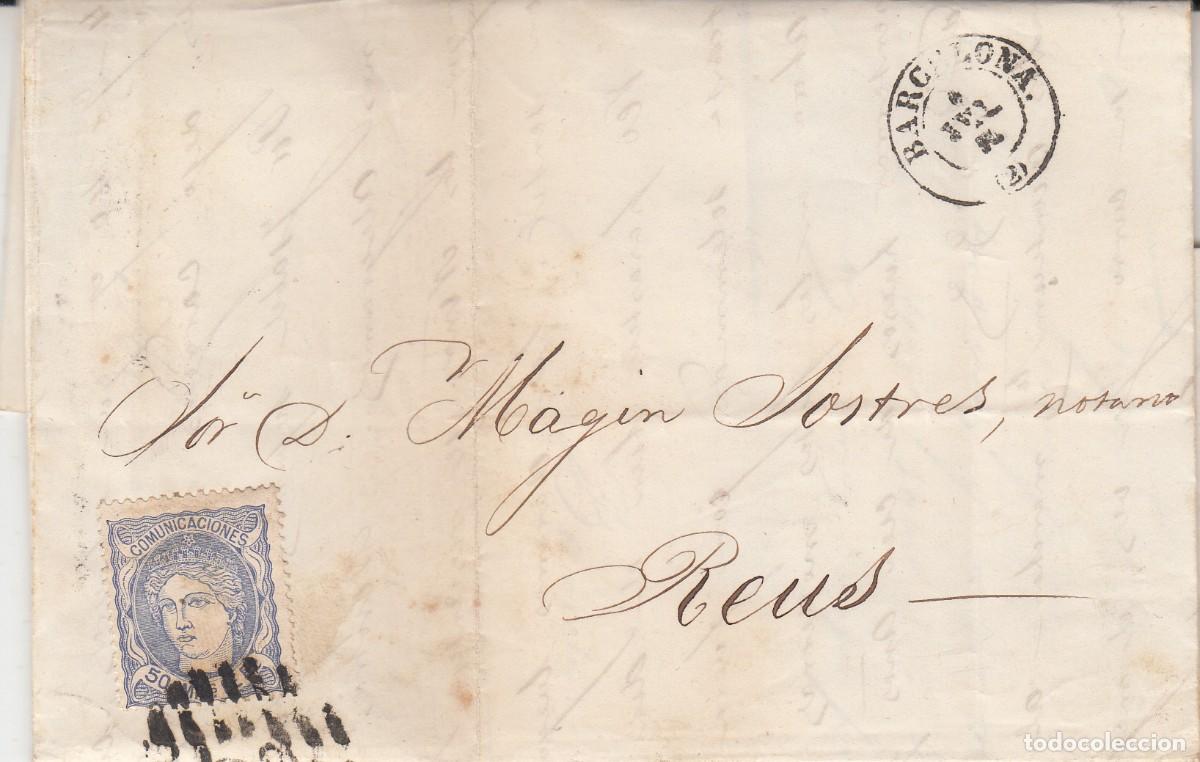 BARCELONA.
Sör D. Magin Sostres, notario
Reus
COMUNICACIONES
50
todocoleccion